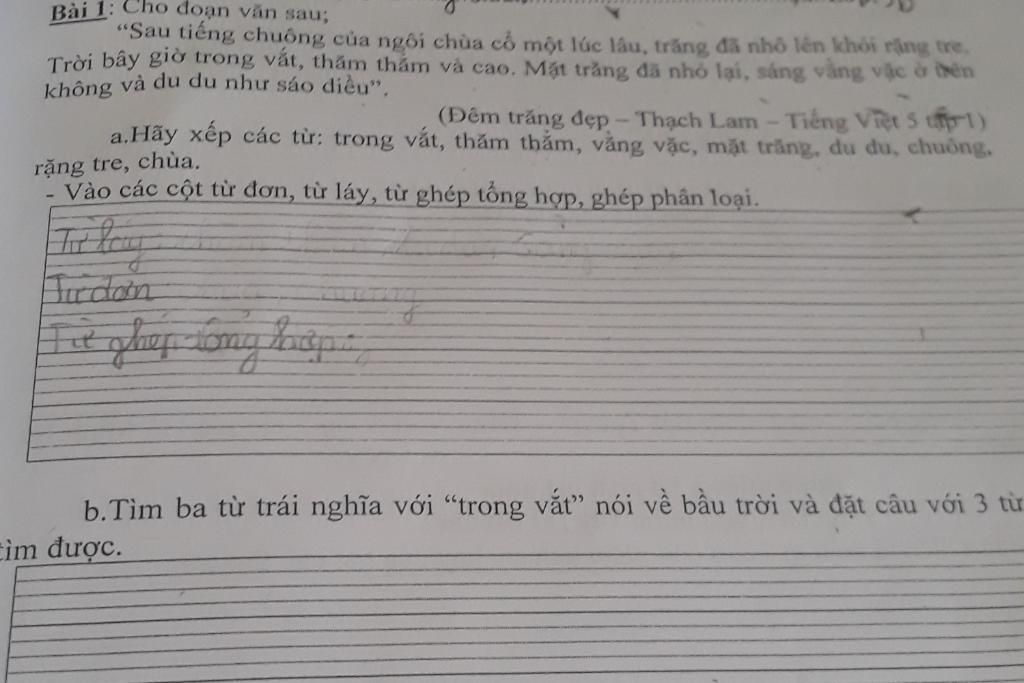 Bài 1: Cho đoạn văn sau;
“Sau tiếng chuông của ngôi chùa cổ một lúc lâu, trăng đã nhô lên khỏi rặng tre.
Trời bây giờ trong vắt, thăm thẳm và cao. Mặt trăng đã nhỏ lại, sáng vằng vặc ở trên
không và du du như sáo diều”.
(Đêm trăng đẹp – Thạch Lam – Tiếng Việt 5 tập 1)
a.Hãy xếp các từ: trong vắt, thăm thẳm, vằng vặc, mặt trăng, du du, chuông,
rặng tre, chùa.
- Vào các cột từ đơn, từ láy, từ ghép tổng hợp, ghép phân loại.
Từ láy
Từ đơn
Từ ghép tổng hợp :
b.Tìm ba từ trái nghĩa với “trong vắt” nói về bầu trời và đặt câu với 3 từ
tìm được.